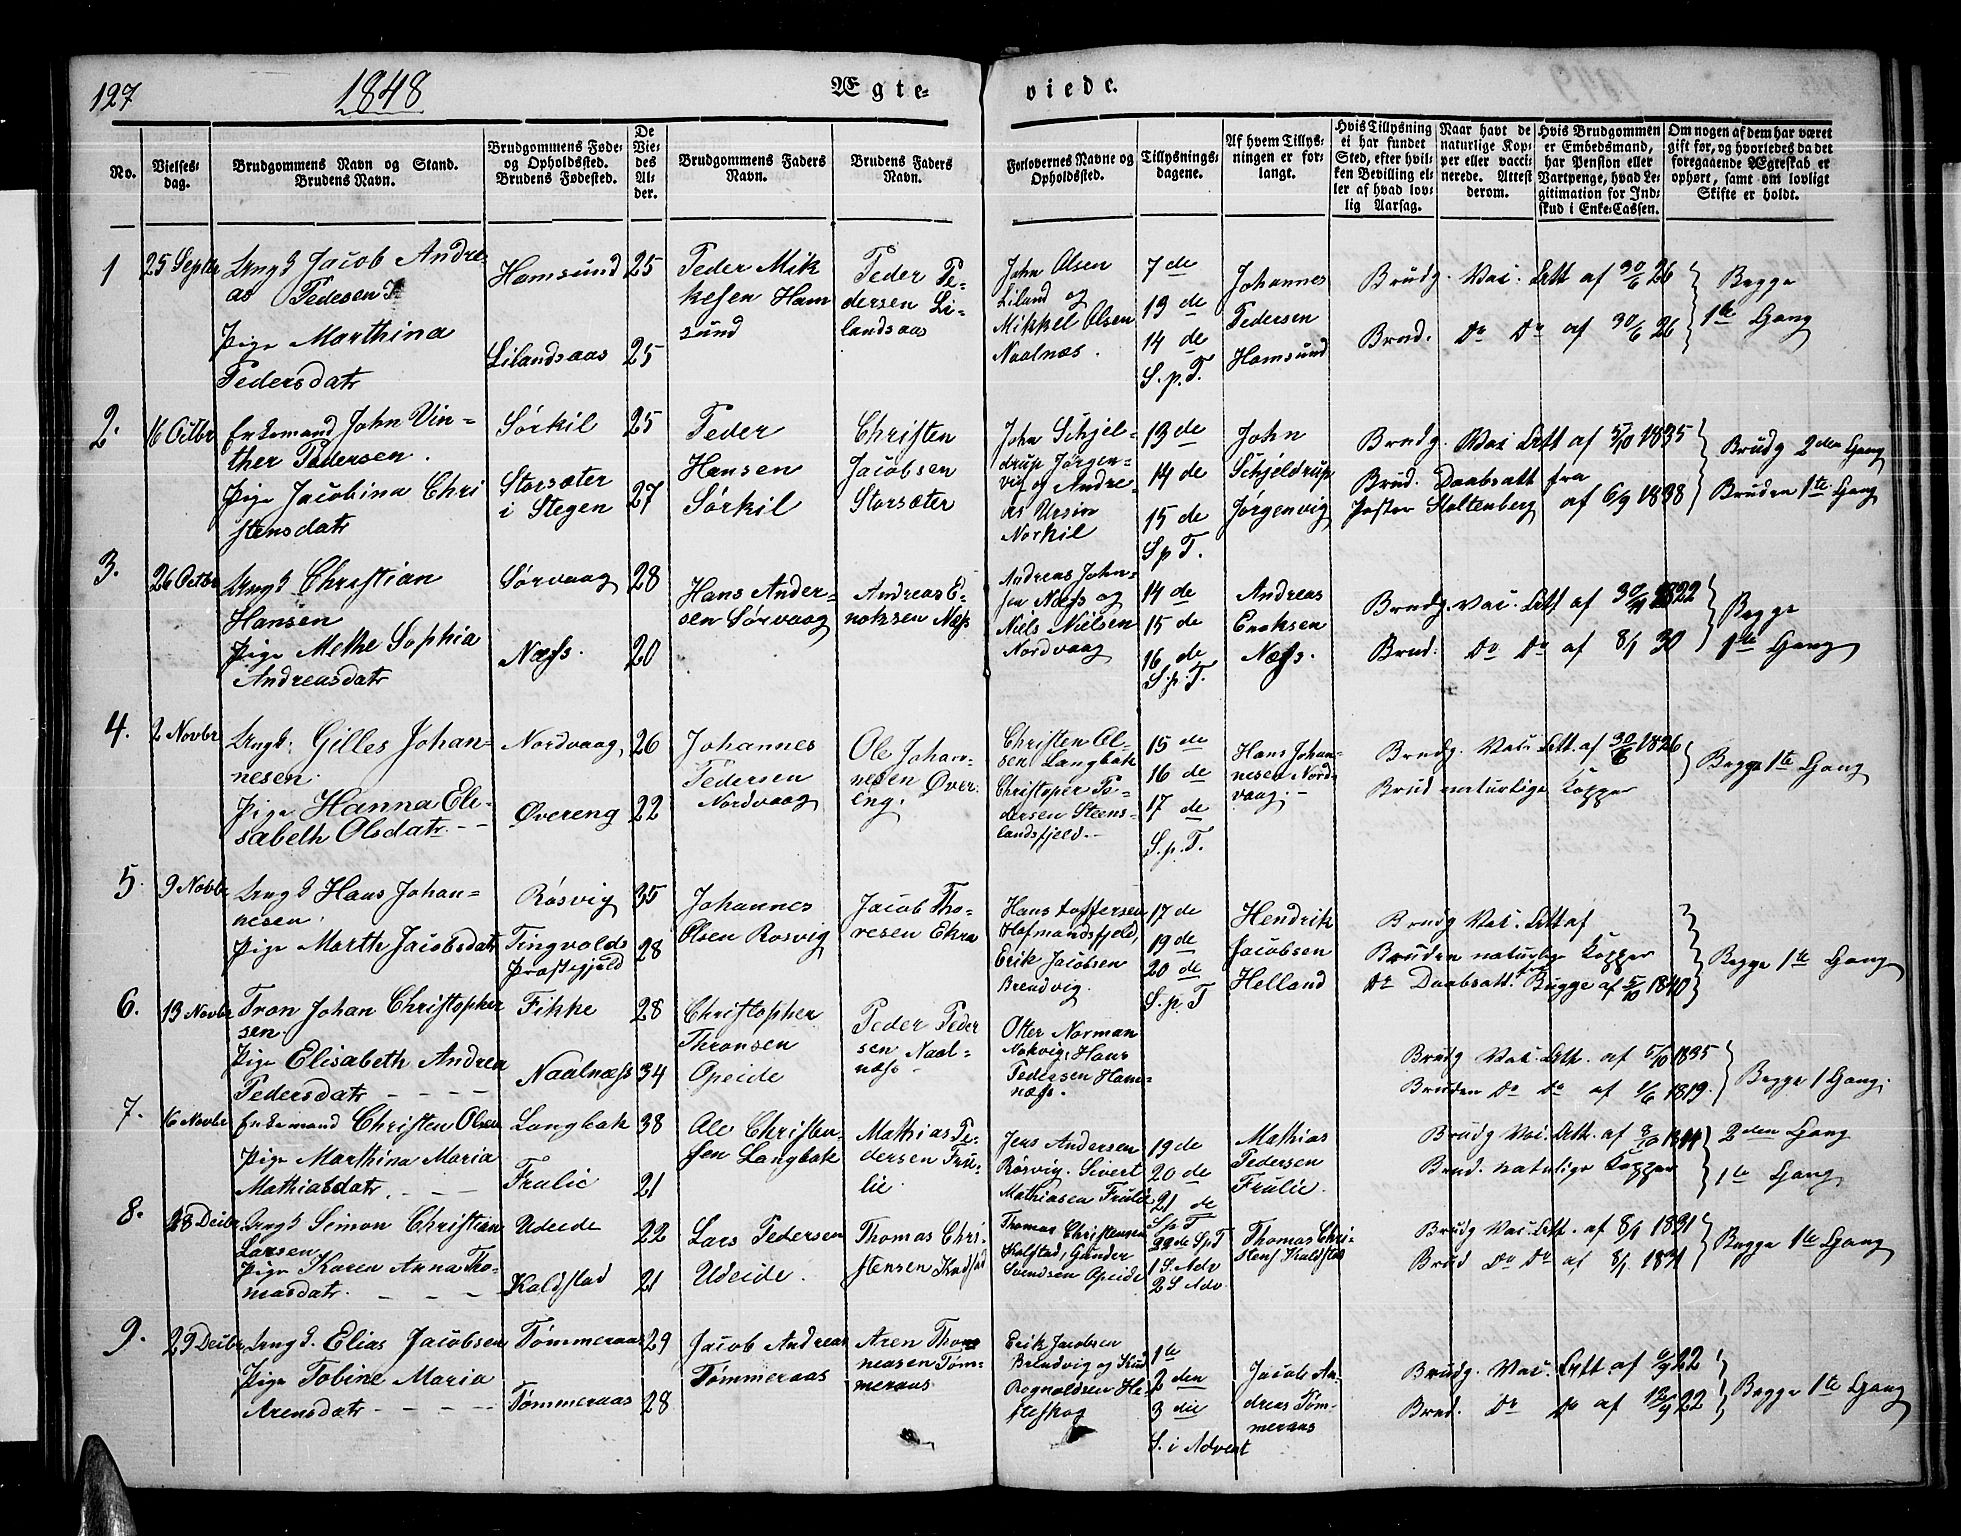 127
1848
Ægte-
viede.
No.
Vielses-
dag.
Brudgommens Navn og Stand.
Brudens Navn.
Brudgommens Føde-
og Opholdssted.
Brudens Fødested.
De
Vie-
des
Al-
der.
Brudgommens Faders
Navn.
Brudens Faders
Navn.
Forlovernes Navne og
Opholdssted.
Tillysnings-
dagene.
Af hvem Tillys-
ningen er for-
langt.
Hvis Tillysning
ei har fundet
Sted, efter hvil-
ken Bevilling el-
ler af hvad lov-
lig Aarsag.
Naar havt de
naturlige Kop-
per eller vacci-
nerede. Attest
derom.
Hvis Brudgommen
er Embedsmand,
har Pension eller
Vartpenge, hvad Le-
gitimation for Ind-
skud i Enke-Cassen.
Om nogen af dem har været
gift før, og hvorledes da det
foregaaende Ægteskab er
ophørt, samt om lovligt
Skifte er holdt.
1
25 Septbr
Ungk Jacob Andre
as Pedersen
Pige Marthina
Pedersdatr
Hamsund
Lilandsaas
25
25
Peder Mik
kelsen Ham
sund
Peder Pe-
dersen Li-
landsaas
John Olsen
Liland og
Mikkel Olsen
Naalnæs.
7 de
13 de
14 de
S. p. T.
Johannes
Pedersen
Hamsund
Brudg. Vac. Att af 30/6 26
Brud. Do Do af 30/6 26
Begge
1te Gang
2.
16 Octbr
Enkemand John Vin-
ther Pedersen.
Pige Jacobina Chri
stensdatr
Sørkil
Storsæter
i Stegen
25
27
Peder
Hansen
Sørkil
Christen
Jacobsen
Storsæter
John Schjel-
drup Jørgen-
vig og Andre-
as Ursin
Norkil
13 de
14 de
15 de
S p T.
John
Schjeldrup
Jørgenvig
Brudg. Vac. Att af 5/10 1835
Brud. Daabsatt fra
Paster Stoltenberg af 6/9 1838
Brudg 2den Gang
Bruden 1te Gang
3.
26 Octbr
Ungk Christian
Hansen
Pige Methe Sophia
Andreasdatr
Sørvaag
Næss.
28
20
Hans Ander-
sen Sørvaag
Andreas E-
noksen Næss
Andreas John-
sen Næss og
Niels Nielsen
Nordvaag
14 de
15 de
16 de
S. p. T.
Andreas
Enoksen
Næss.
Brudg. Vac. Att af 1822
Brud. Do Do af 8/1 30
Begge
1te Gang
4.
2 Novbr
Ungk. Gilles Johan-
nesen.
Pige Hanna Eli-
sabeth Olsdatr - -
Nordvaag
Øvereng
26
22
Johannes
Pedersen
Nordvaag
Ole Johan-
nesen Øver-
eng.
Christen Ol-
sen Langbak
Christopher Pe-
dersen Steens-
landsfjeld.-
15 de
16 de
17 de
S. p. T.
Hans Johan-
nesen Nord-
vaag. -
Brudg. Vac. Att. af 30/6 1826
Brud naturlige Kopper
Begge 1te Gang
5.
9 Novbr
Ungk Hans Johan-
nesen.
Pige Marth Jacobsdatr
Røsvig
Tingvolds
Præstegjeld
35
28
Johannes
Olsen Rosvig
Jacob Tho-
resen Ekra
Hans Loffersen
Hofmandsfjeld,
Erik Jacobsen
Brendvig.
17 de
19 de
20 de
S. p. T
Hendrik
Jacobsen
Helland
Brudg Vac. Att af
Bruden naturlige Kopper
Do Daabsatt. fra Bugge af 5/10 1840
Begge 1te Gang
6.
13 Novbr
Tron Johan Christopher
sen.
Pige Elisabeth Andrea
Pedersdatr - - - -
Fikke
Naalnæss
28
34
Christopher
Thronsen
Opeide
Peder Peder
sen Naal-
næss -
Otter Norman
Nokvig, Hans
Pedersen Ham-
næss.
Brudg Vac. Att. af 5/10 1835
Bruden Do Do af 1/6 1819.
Begge 1 Gang.
7.
16 Novbr
Enkemand Christen Olsen
Pige Marthina Maria
Mathiasdatr. - - -
Langbak
Frulie
38
21
Ole Christen-
sen Langbak
Mathias Pe-
dersen Fru-
lie.
Jens Andersen
Røsvig. Sivert
Mathiasen Frulie
19 de
20 de
21 de
S p T
Mathias
Pedersen
Frulie.
Brudg Vac. Att. af
Brud. naturlige Kopper
2den Gang
1te Gang
8.
28 Decbr
Ungk Simon Christian
Larsen
Pige Karen Anna Tho-
masdatr. - - -
Udeide
Kaldstad
22
21
Lars Pedersen
Udeide.
Thomas Chri-
stensen Kaldstad
Thomas Christensen
Kalstad, Gunder
Svendsen Opeide
22de S p T
1 S. Adv
2 S Adv
Thomas Chri-
stens Kaldstad
Brudg Vac. Att. af 8/1 1831
Brud Do Do af 8/1 1831
Begge 1te Gang
9.
29 Decbr
Ungk. Elias Jacobsen
Pige Tobine Maria
Arensdatr - - - -
Tømmeraas
Tømmeraas
29
28
Jacob Andreas
Tømmeraas
Aren Thom
measen Tøm-
meraas
Erik Jacobsen
Brendvig og Knud
Rognaldsen He-
steskog
1te
2 den
3 die
S. i Advent
Jacob An-
dreas Tøm-
meraas
Brudg. Vac. Att. af 6/9 22
Brud. Do Do af 13/9 22
Begge 1te Gang